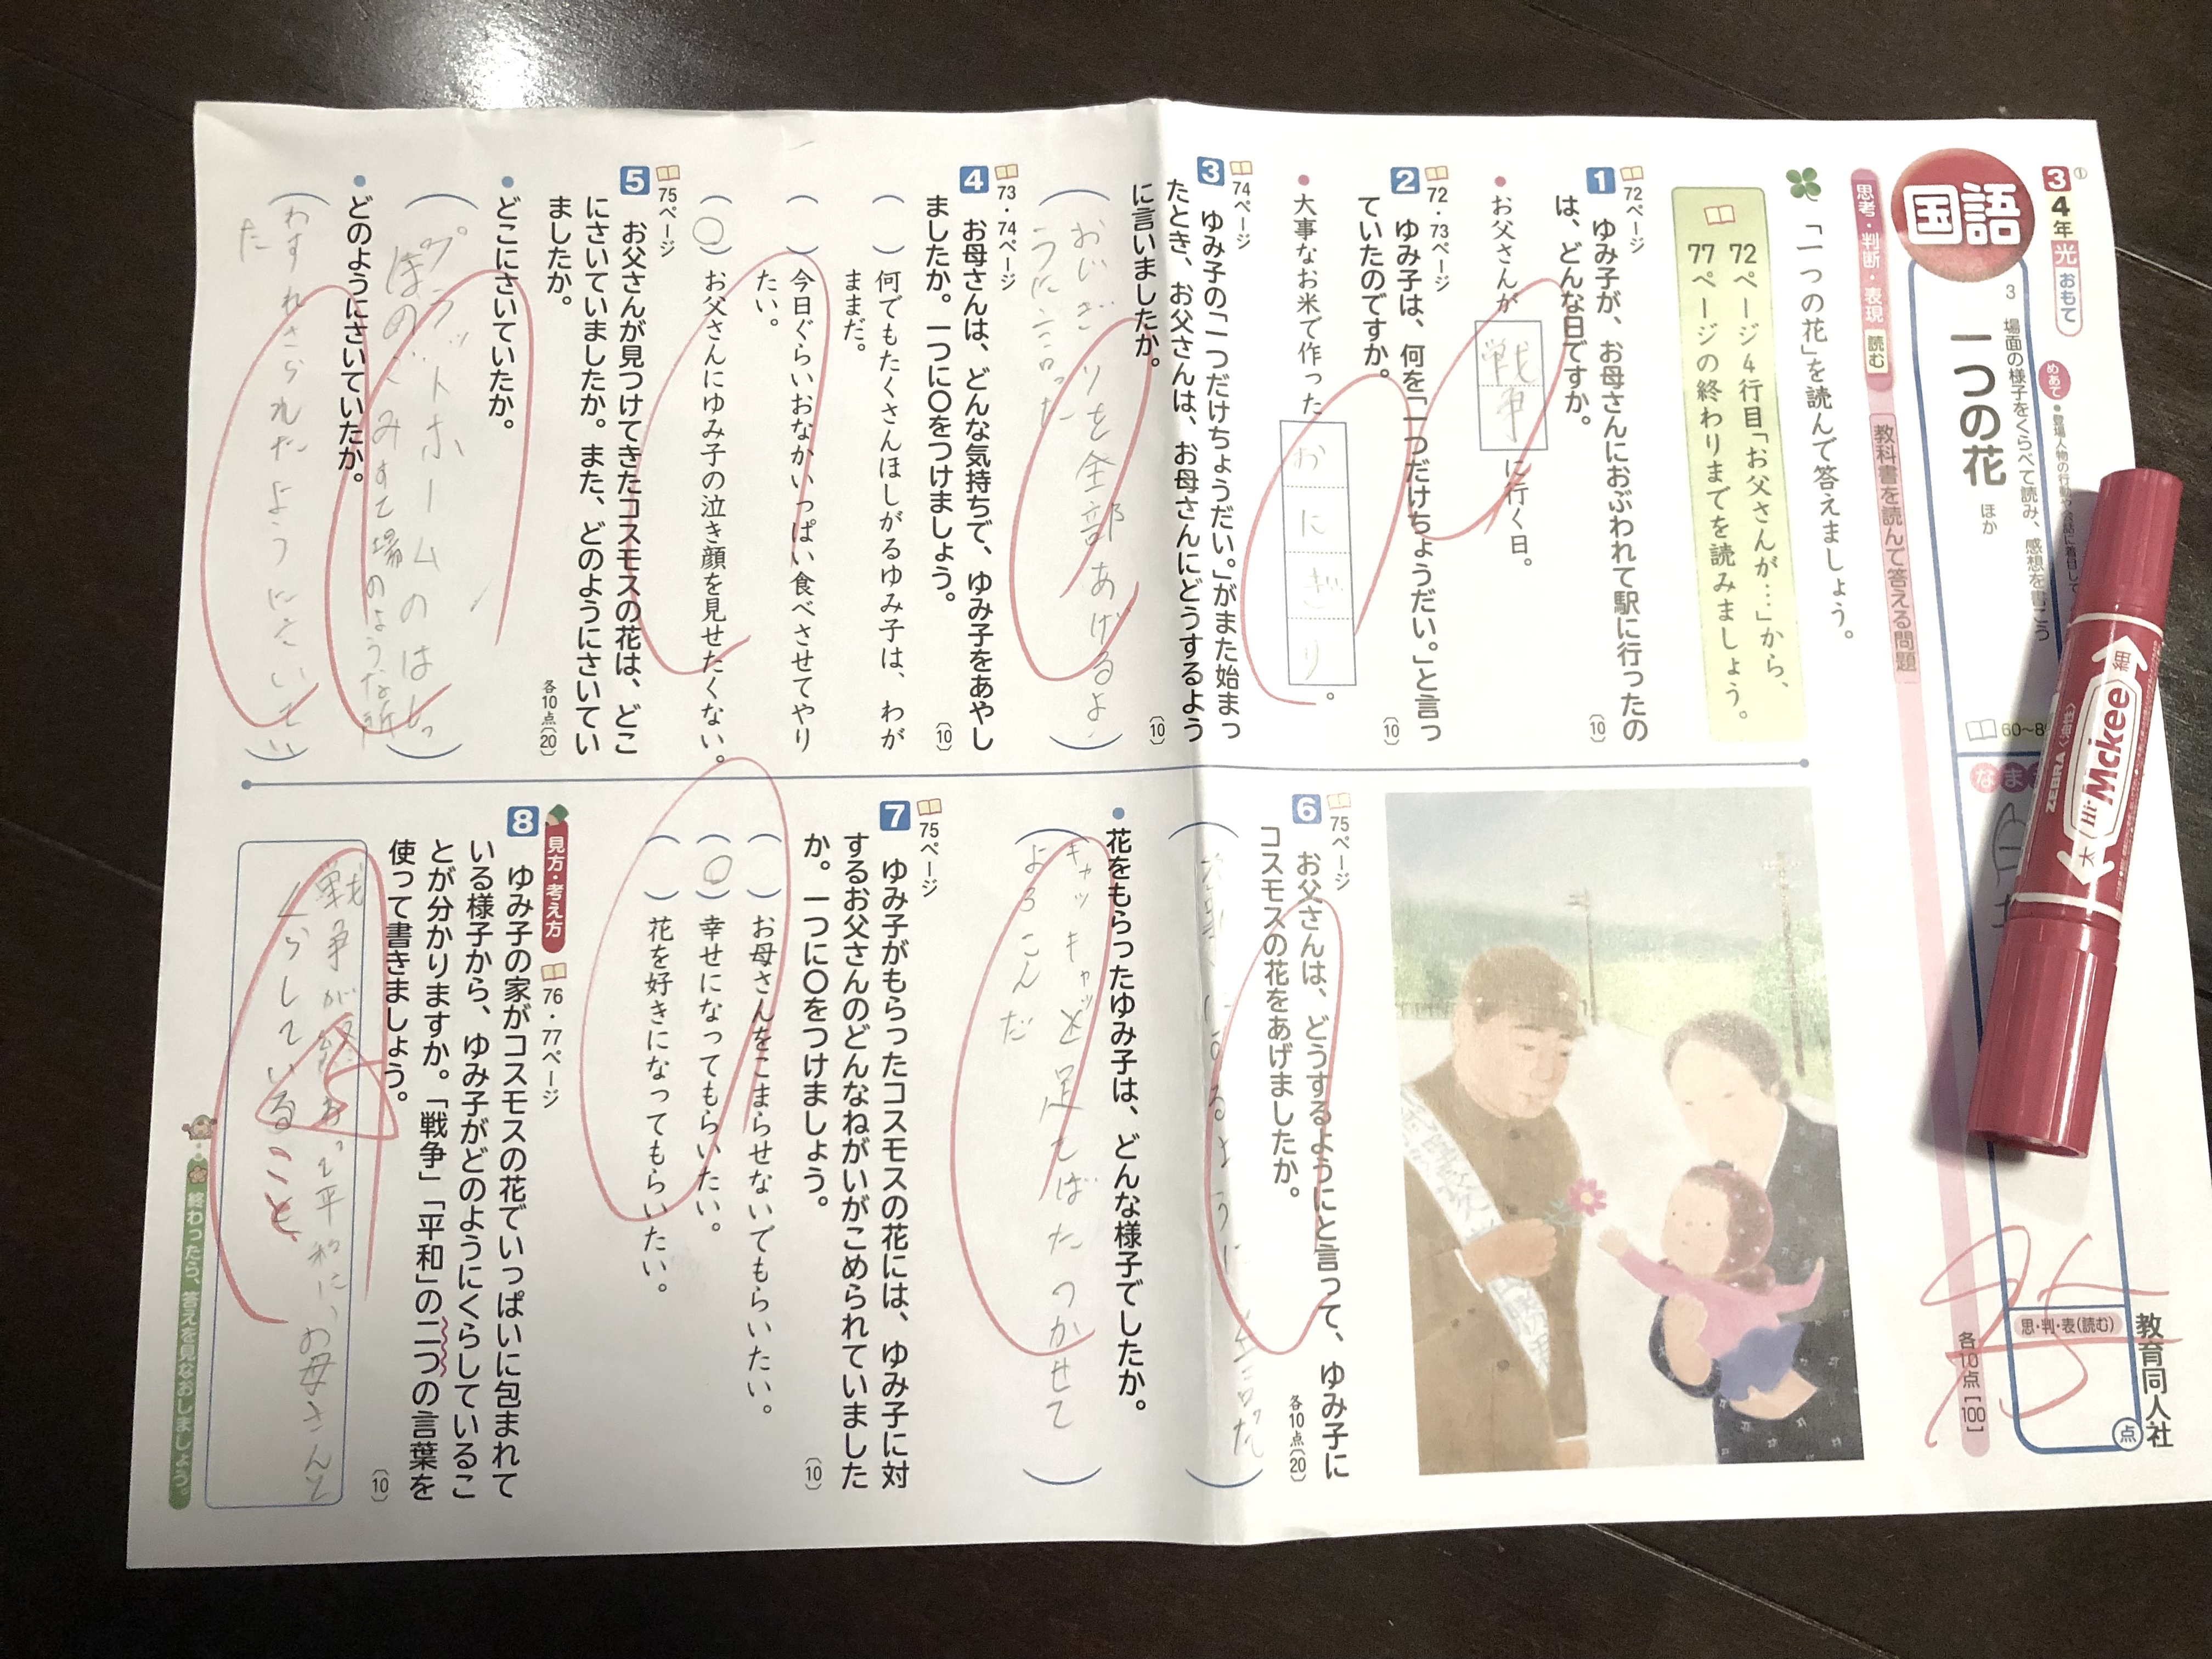 ①
3 4年 光 おもて
国語
めあて
3 場面の様子をくらべて読み、感想を書こう
一つの花 ほか
60~8
な ま
教育同人社
思・判・表(読む)
点
95
思考・判断・表現 読む
教科書を読んで答える問題
各10点[100]
「一つの花」を読んで答えましょう。
72ページ4行目「お父さんが…」から、
77ページの終わりまでを読みましょう。
72ページ
1 ゆみ子が、お母さんにおぶわれて駅に行ったの
は、どんな日ですか。
(10)
お父さんが 戦争 に行く日。
72・73ページ
2 ゆみ子は、何を「一つだけちょうだい。」と言っ
ていたのですか。
(10)
大事なお米で作った おにぎり。
74ページ
3 ゆみ子の「一つだけちょうだい。」がまた始まっ
たとき、お父さんは、お母さんにどうするよう
に言いましたか。
(10)
おにぎりを全部あげるよ
うに言った
73・74ページ
4 お母さんは、どんな気持ちで、ゆみ子をあやし
ましたか。一つに○をつけましょう。
(10)
( )何でもたくさんほしがるゆみ子は、わが
ままだ。
( )今日ぐらいおなかいっぱい食べさせてやり
たい。
(○)お父さんにゆみ子の泣き顔を見せたくない。
75ページ
5 お父さんが見つけてきたコスモスの花は、どこ
にさいていましたか。また、どのようにさいてい
ましたか。
各10点(20)
どこにさいていたか。
プラットホームのはしっ
ぽのごみすて場のような所
どのようにさいていたか。
わすれさられたようにさいてい
た
75ページ
6 お父さんは、どうするようにと言って、ゆみ子に
コスモスの花をあげましたか。
各10点(20)
花をもらったゆみ子は、どんな様子でしたか。
キャッキャッと足をばたつかせて
よろこんだ
75ページ
7 ゆみ子がもらったコスモスの花には、ゆみ子に対
するお父さんのどんなねがいがこめられていました
か。一つに○をつけましょう。
(10)
( )お母さんをこまらせないでもらいたい。
(○)幸せになってもらいたい。
( )花を好きになってもらいたい。
見方・考え方
76・77ページ
8 ゆみ子の家がコスモスの花でいっぱいに包まれて
いる様子から、ゆみ子がどのようにくらしているこ
とが分かりますか。「戦争」「平和」の二つの言葉を
使って書きましょう。
(10)
戦争が終わって平和に、お母さんと
くらしていること
5
終わったら、答えを見なおしましょう。
ZEBRA
Hi-Mckee
細
太